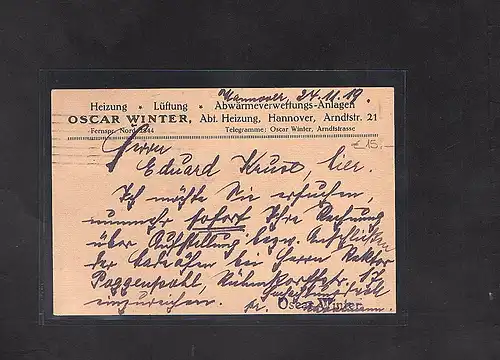 Hannover, 24.11.19.
Heizung • Lüftung • Abwärmeverwertungs-Anlagen
OSCAR WINTER, Abt. Heizung, Hannover, Arndtstr. 21
Fernspr. Nord Telegramme: Oscar Winter, Arndtstrasse
€ 15.-
Herrn
Eduard hier.
Ich möchte Sie ersuchen,
nunmehr sofort Ihre Rechnung
über Aufstellung bezw. Anschließen
der bei Herrn Rektor
Poggenpohl,
einzureichen.
Oscar Winter